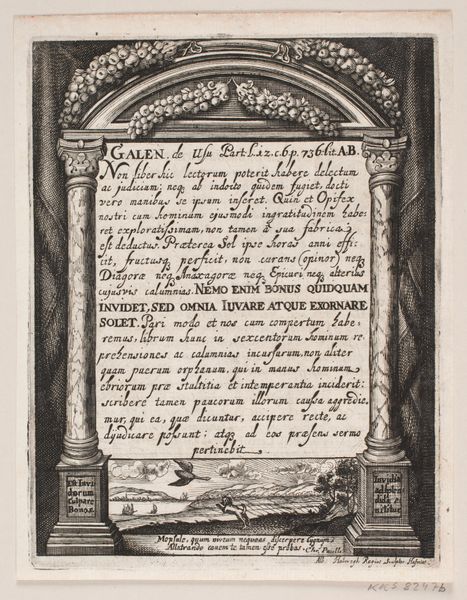 GALEN. de Usu Part. l.12.c.6.p.736.lit.A.B.
Non liber hic lectorum poterit habere delectum
ac judicium; neq, ab indocto quidem fugiet, docti
vero manibus se ipsum inseret. Quin et Opifex
nostri cum hominum ejusmodi ingratitudinem habe-
ret exploratissimam, non tamen à sua fabrica
est deductus. Præterea Sol ipse horas anni effi-
cit, fructusq, perficit, non curans (opinor) neq,
Diagoræ neq, Anaxagoræ neq, Epicuri neq, alterius
cujusvis calumnias. NEMO ENIM BONUS QUIDQUAM
INVIDET, SED OMNIA IUVARE ATQUE EXORNARE
SOLET. Pari modo et nos cum compertum habe-
remus, librum hunc in sexcentorum hominum re-
prehensiones ac calumnias incursurum, non aliter
quam puerum orphanum, qui in manus hominum
ebriorum præ stultitia et intemperantia inciderit:
scribere tamen paucorum illorum caussa aggredie-
mur, qui ea, quæ dicuntur, accipere recte, ac
dijudicare possunt: atq, ad eos præsens sermo
pertinebit
Est Invi
dorum
culpare
Bonos.
Invidia
Mopsule, quum vivum nequeas discerpere Cygnum,
Allatrando canem te tamen esse probas. Chr.
Alb. Haelwegh Regius Sculptor Hafniæ
KKS 8247b